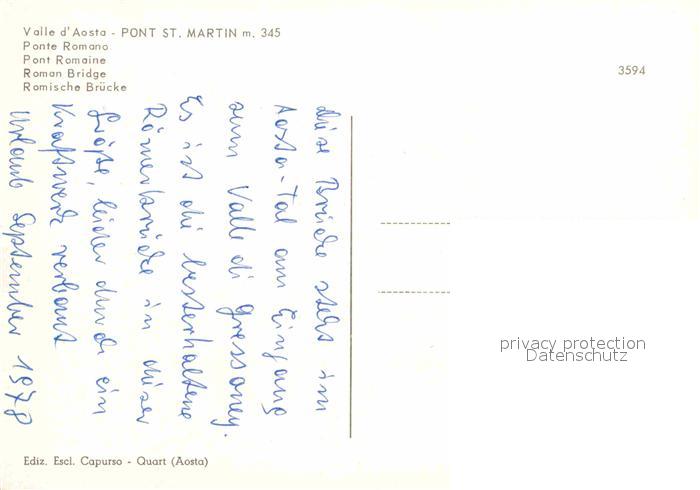 Valle d'Aosta - PONT ST. MARTIN m. 345
Ponte Romano
Pont Romaine
Roman Bridge
Romische Brücke
3594
diese Brücke steht im
Aosta-Tal am Eingang
zum Valle di Gressoney.
Es ist die besterhaltene
Römerbrücke in dieser
Größe, leider durch ein
Kraftwerk verbaut
Urlaub September 1978
privacy protection
Datenschutz
Ediz. Escl. Capurso - Quart (Aosta)